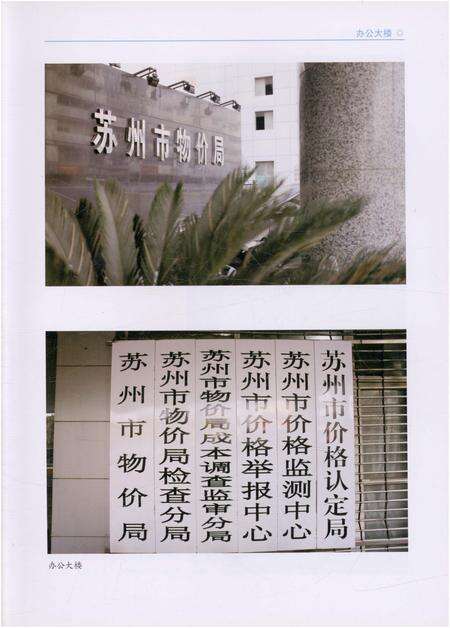 办公大楼
苏州市物价局
苏州市物价局
苏州市物价局检查分局
苏州市物价局成本调查监审分局
苏州市价格举报中心
苏州市价格监测中心
苏州市价格认定局
办公大楼